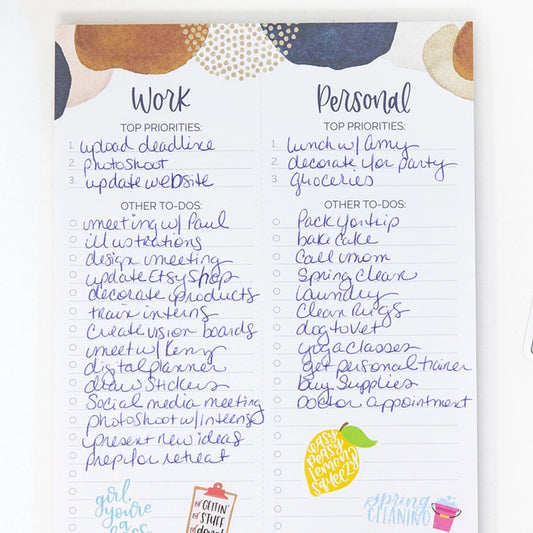 Work
TOP PRIORITIES:
1. upload deadline
2. photoshoot
3. update website
OTHER TO-DOS:
meeting w/ Paul
illustrations
design meeting
update Etsy shop
decorate products
train interns
create vision boards
meet w/ Kenny
digital planner
draw stickers
Social media meeting
photoshoot w/ interns
present new ideas
prep for retreat
girl,
you're
a
Personal
TOP PRIORITIES:
1. lunch w/ Amy
2. decorate for party
3. groceries
OTHER TO-DOS:
Pack for trip
bake cake
Call mom
Spring Clean
laundry
Clean Rugs
dog to vet
yoga classes
get personal trainer
buy Supplies
Doctor appointment
easy
peasy
lemon
squeezy
spring
CLEANING
GETTIN'
STUFF
done!